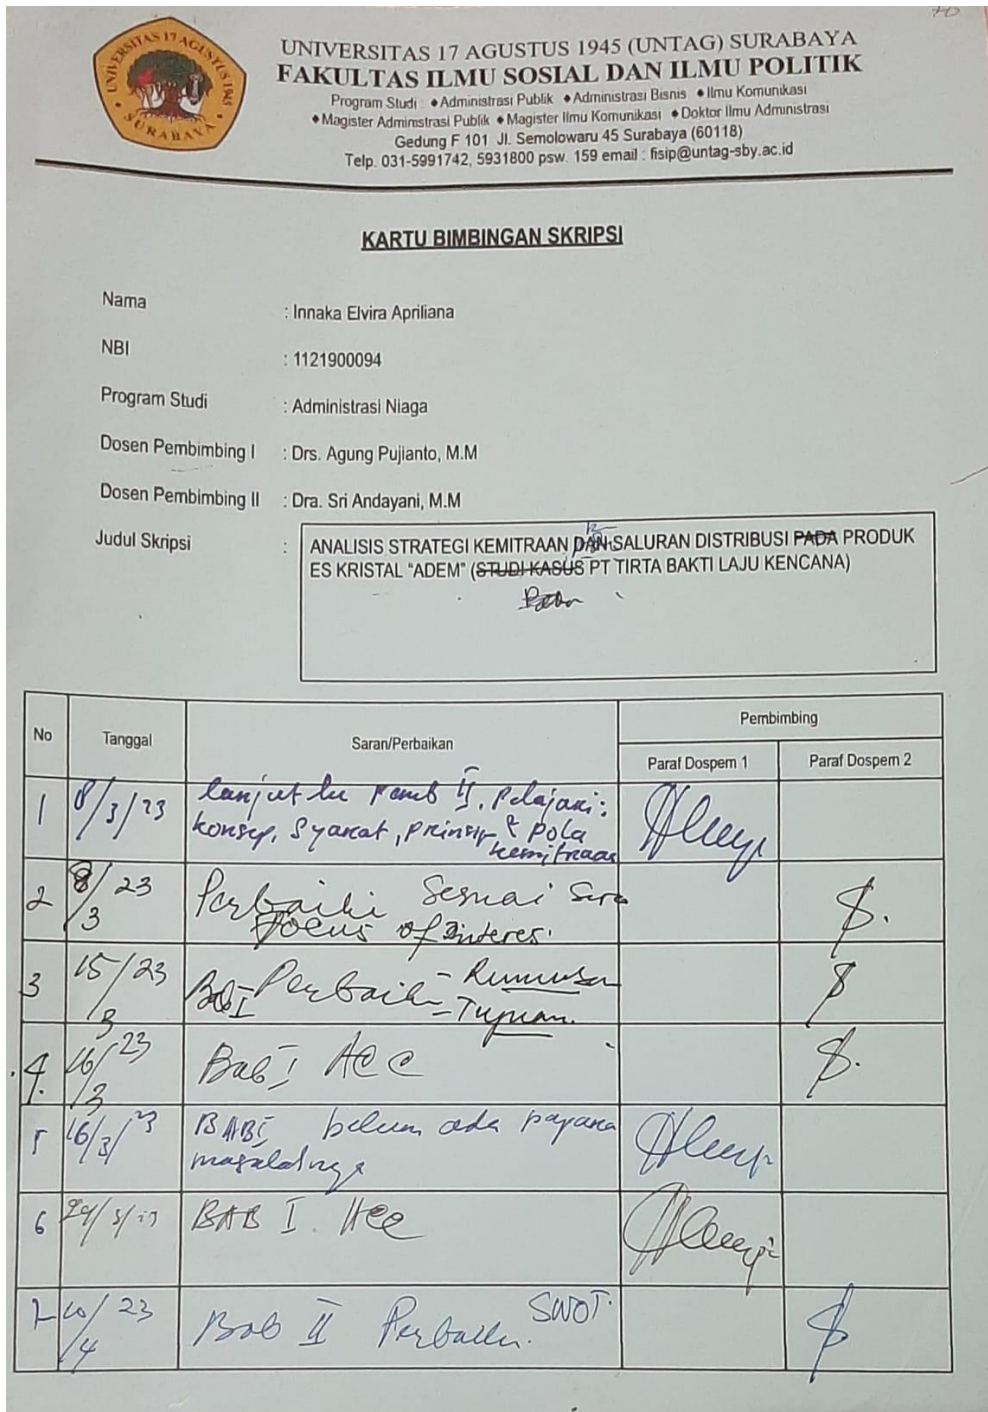 UNIVERSITAS 17 AGUSTUS 1945
SURABAYA
UNIVERSITAS 17 AGUSTUS 1945 (UNTAG) SURABAYA
FAKULTAS ILMU SOSIAL DAN ILMU POLITIK
Program Studi : ◆Administrasi Publik ◆Administrasi Bisnis ◆Ilmu Komunikasi
◆Magister Administrasi Publik ◆Magister Ilmu Komunikasi ◆Doktor Ilmu Administrasi
Gedung F 101 Jl. Semolowaru 45 Surabaya (60118)
Telp. 031-5991742, 5931800 psw. 159 email : fisip@untag-sby.ac.id
KARTU BIMBINGAN SKRIPSI
Nama : Innaka Elvira Apriliana
NBI : 1121900094
Program Studi : Administrasi Niaga
Dosen Pembimbing I : Drs. Agung Pujianto, M.M
Dosen Pembimbing II : Dra. Sri Andayani, M.M
Judul Skripsi : ANALISIS STRATEGI KEMITRAAN DAN SALURAN DISTRIBUSI PADA PRODUK
ES KRISTAL "ADEM" (STUDI KASUS PT TIRTA BAKTI LAJU KENCANA)
No Tanggal Saran/Perbaikan Pembimbing
Paraf Dospem 1 Paraf Dospem 2
1 8/3/23 lanjut ke II. Pelajari:
konsep, Syarat, prinsip & pola
kemitraan
2 8/3 23 Perbaiki Sesuai
Focus of interes.
3 15/3 23 Bab I Perbaiki - Rumusan
- Tujuan.
4. 16/3 23 Bab I ACC
5 16/3/23 BAB I belum ada
masalahnya
6 29/3/23 BAB I. Acc
7 10/4 23 Bab II Perbaiki SWOT.